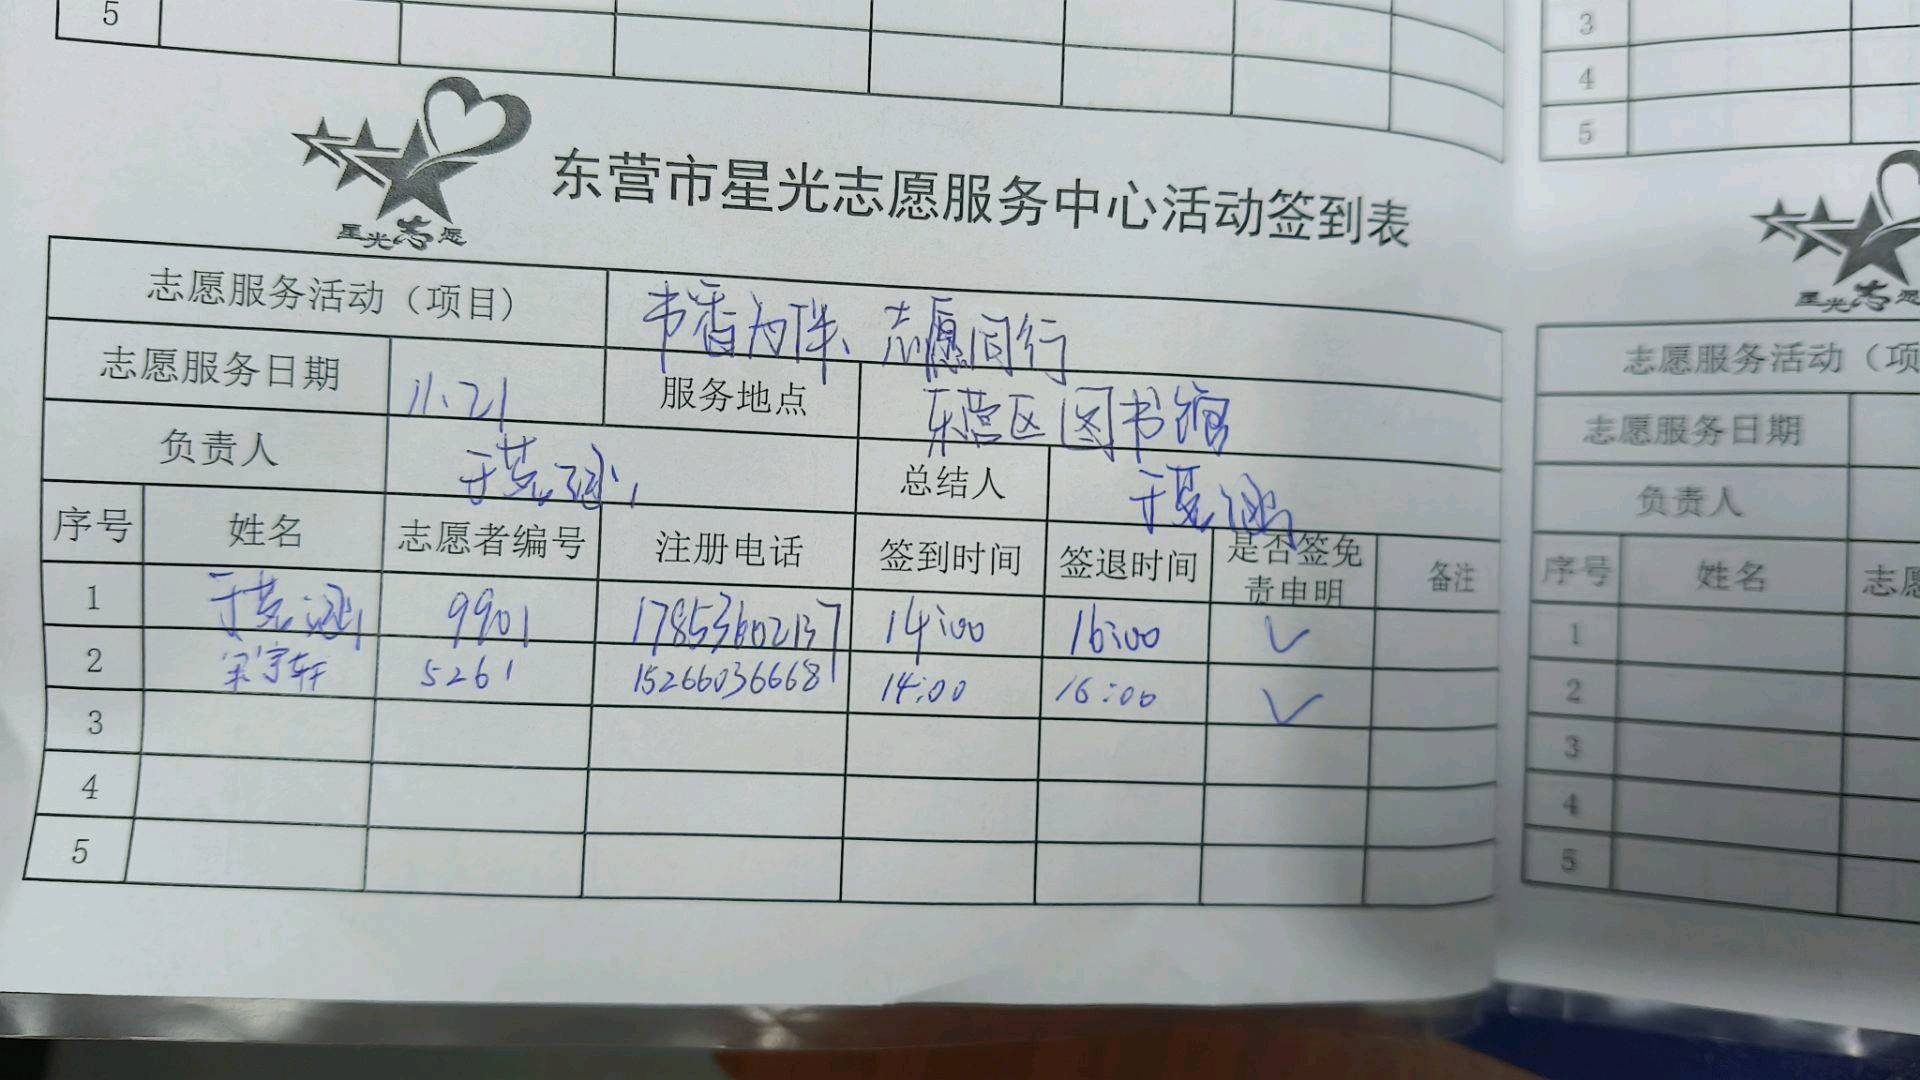 5
3
4
5
星光志愿
东营市星光志愿服务中心活动签到表
志愿服务活动（项目） 书香为伴、志愿同行
志愿服务日期 11.21 服务地点 东营区图书馆
负责人 总结人
序号 姓名 志愿者编号 注册电话 签到时间 签退时间 是否签免责申明 备注
1 9901 17853602137 14:00 16:00 ✓
2 5261 15266036668 14:00 16:00 ✓
3
4
5
星光志愿
志愿服务活动（项
志愿服务日期
负责人
序号 姓名 志愿
1
2
3
4
5